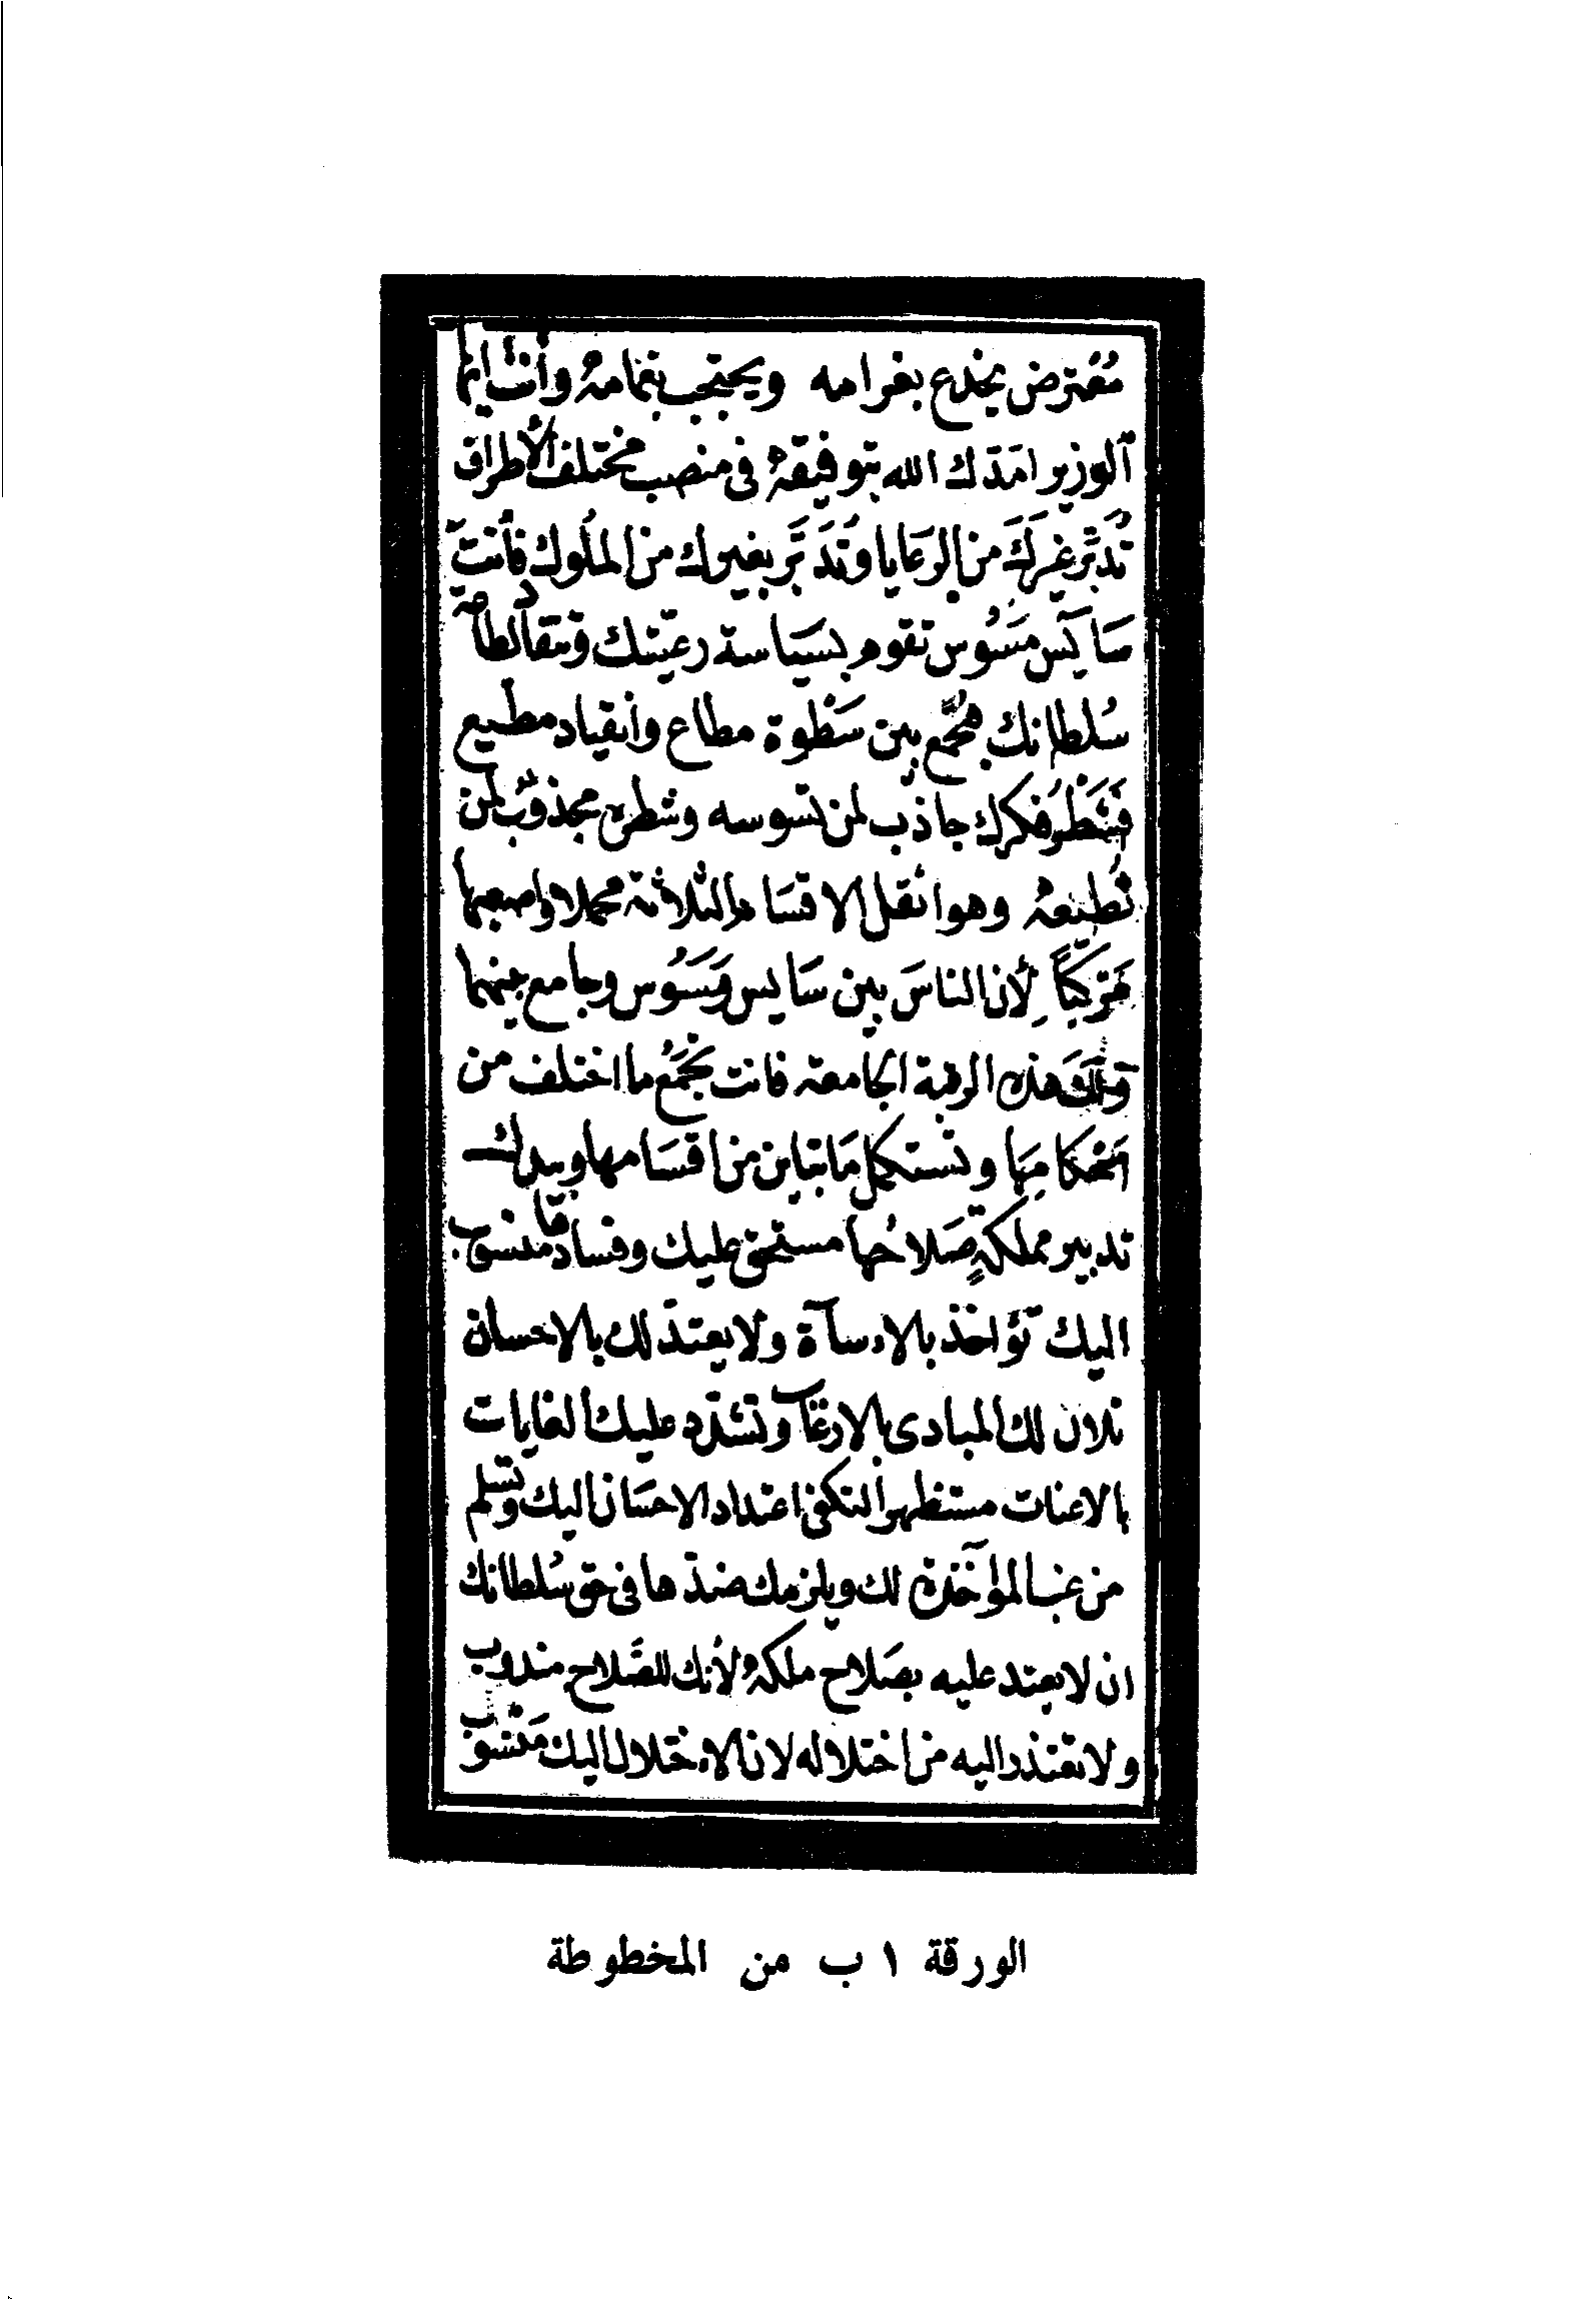 مُعْترض يخدع بغرامه ويحتجب بغمامهُ وأنتَ ايها
ألوزير امَدّك الله بتوفيقهُ فى منصب مختلف الأطراف
تُدَبّر غيرَكَ من الرعَايا وتُدَبَّر بغيرك من الملُوك فأنتَ
سَايَس مَسُوس تقوم بسيَاسة رعيّتك وتنقاد لطاعة
سُلطانك فتجمع بين سَطْوة مطاع وأنقياد مطيع
فشَطْرُ فكرك جاذب لمن تسوسه وشطره مجذوبٌ لمن
تُطيعهُ وهو اثقل الاقسَام الثلاثة محملا واصعبها
مَركَبًا لأن الناسَ بين سَايس ومَسُوس وجامع بينهما
ولكَ هذه الرتبة الجامعة فانت تجْمَعُ ما اختلف من
احْكامِهَا وتستكمل مَا تباين من اقسَامها وبيدك
تدبير مملكةٍ صَلاحُها مستحق عليك وفسادها منسوب
اليك تؤاخذ بالاءساآة ولا يعتدّ لك بالاحسان
تلان لك المبادى بالارغاب وتشدّد عليك ألغايات
بالاعنات مستظهراً لتكفى اعتداد الاحسَان اليك وتسْلم
من غب المؤآخذة لك ويلزمك ضدّها فى حق سُلطانك
ان لا يعتد عليه بصَلاح ملكهُ لأنك للصَّلاح مندوب
ولا تعتذر اليه من اختلاله لان الاءختلال اليك مَنْسوب
الورقة ١ ب من المخطوطة